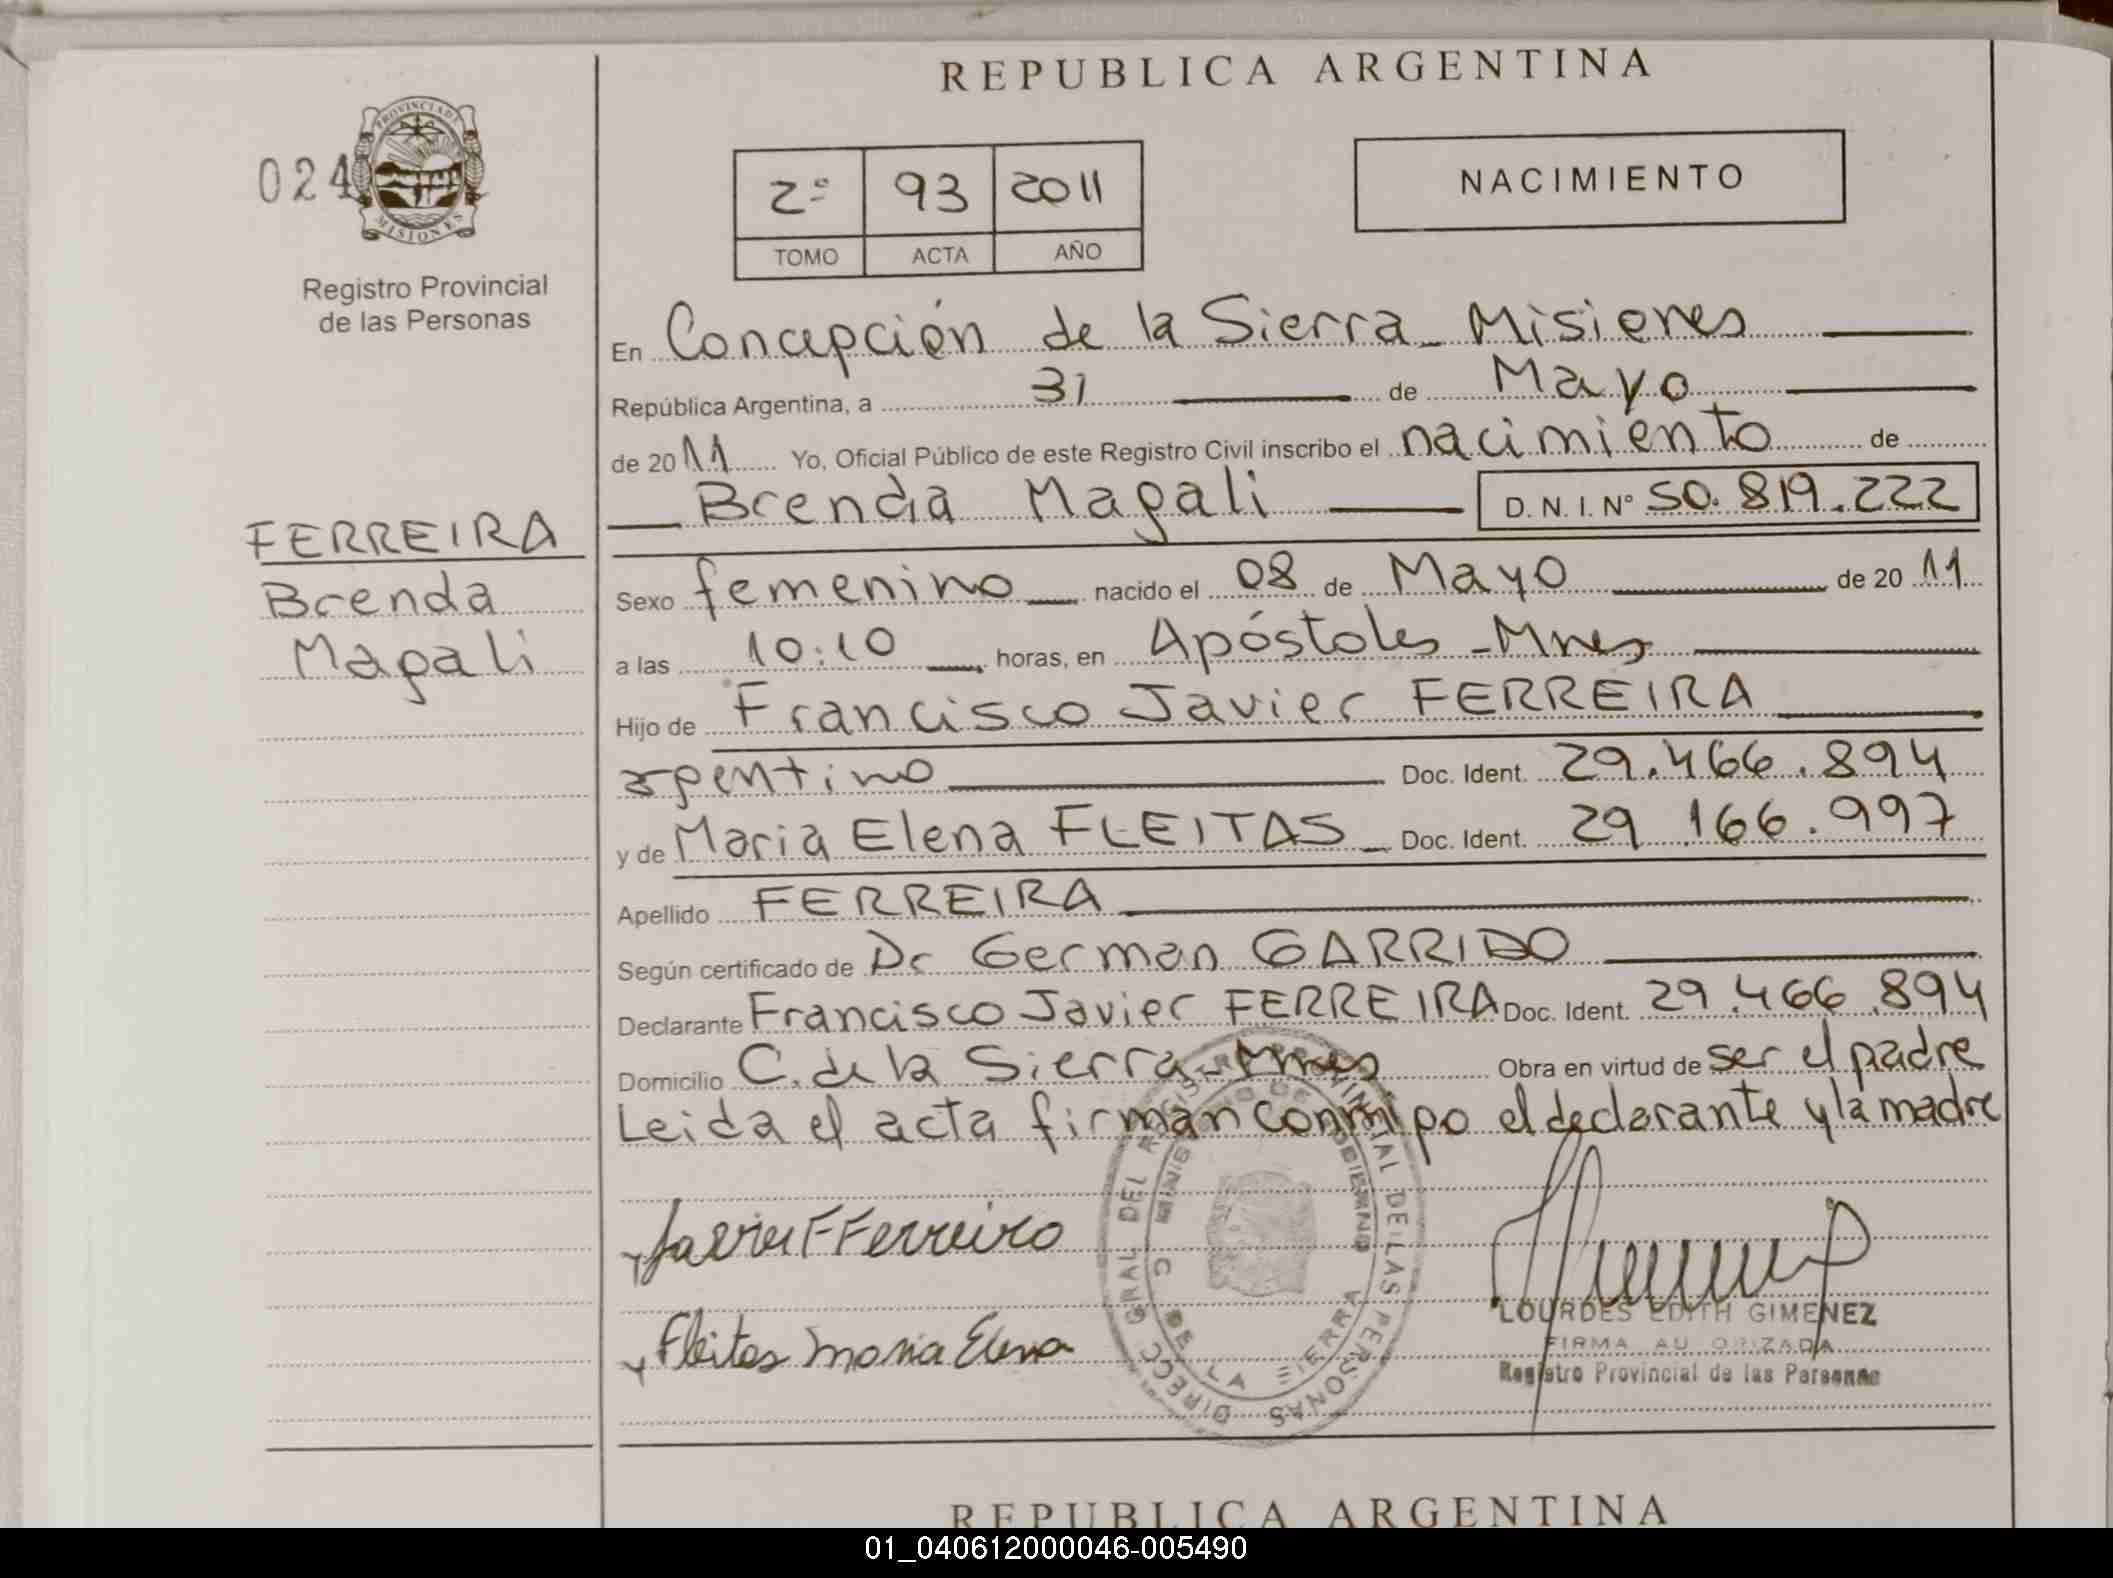 REPUBLICA ARGENTINA
024
PROVINCIA DE
MISIONES
Registro Provincial
de las Personas
2º 93 2011
TOMO ACTA AÑO
NACIMIENTO
En Concepción de la Sierra - Misiones
República Argentina, a 31 de Mayo
de 2011 Yo, Oficial Público de este Registro Civil inscribo el nacimiento de
Brenda Magali D. N. I. Nº 50.819.222
FERREIRA
Brenda
Magali
Sexo femenino nacido el 08 de Mayo de 2011
a las 10:10 horas, en Apóstoles - Mnes
Hijo de Francisco Javier FERREIRA
argentino Doc. Ident. 29.466.894
y de Maria Elena FLEITAS Doc. Ident. 29.166.997
Apellido FERREIRA
Según certificado de Dr German GARRIDO
Declarante Francisco Javier FERREIRA Doc. Ident. 29.466.894
Domicilio C. de la Sierra - Mnes Obra en virtud de ser el padre
Leida el acta firman conmigo el declarante y la madre
Javier F Ferreiro
Fleitas Maria Elena
DIRECC GRAL DEL REGISTRO PROVINCIAL DE LAS PERSONAS
MINISTERIO DE GOBIERNO
C DE LA SIERRA
LOURDES EDITH GIMENEZ
FIRMA AUTORIZADA
Registro Provincial de las Personas
REPUBLICA ARGENTINA
01_040612000046-005490